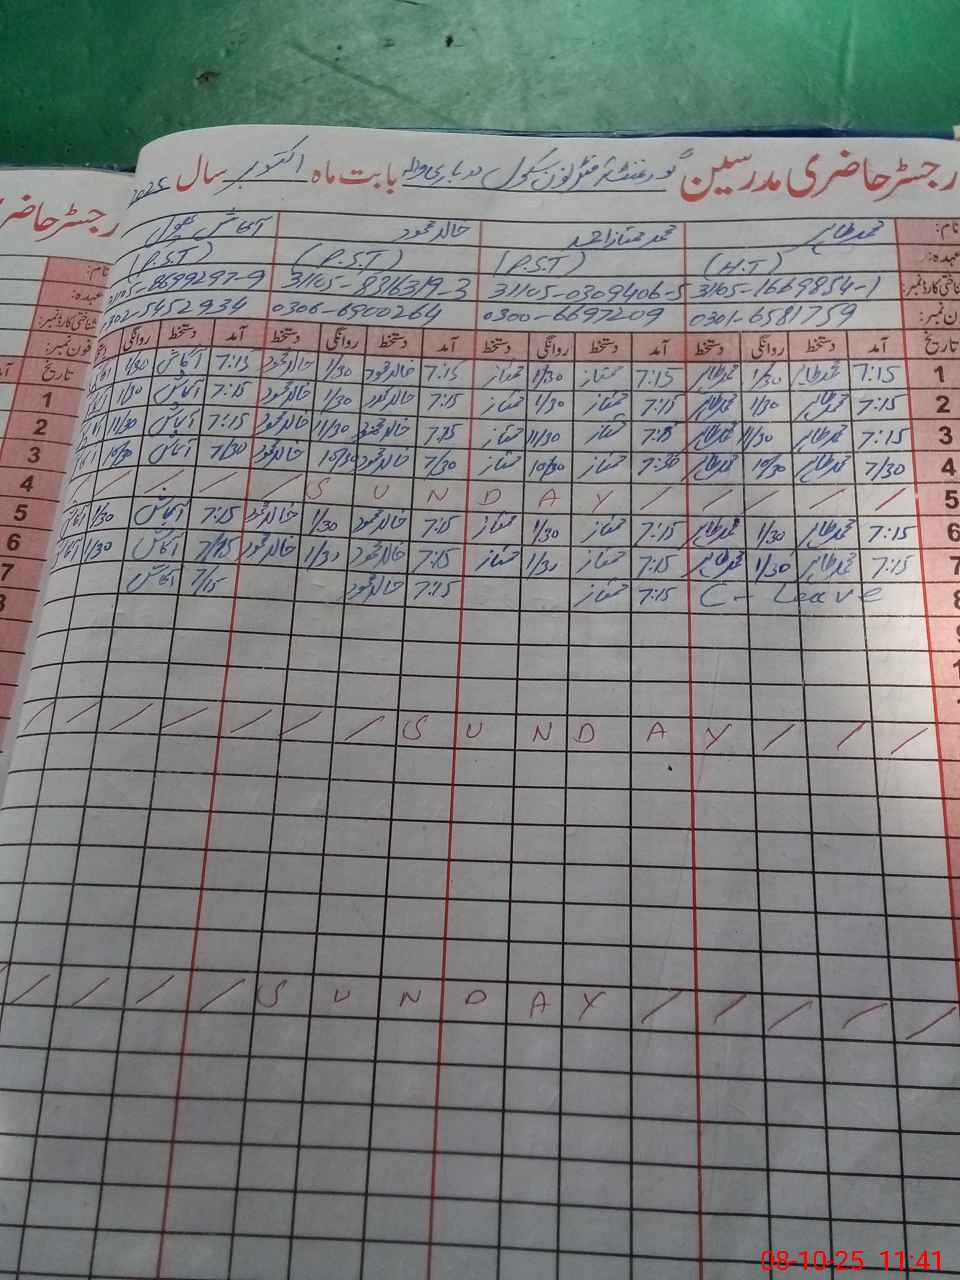 رجسٹر حاضری مدرسین گورنمنٹ سکول بابت ماہ اکتوبر سال 2025
رجسٹر حاضری
نام: محمد طاہر محمد ممتاز احمد خالد محمود
عہدہ: (H.T) (P.S.T) (P.S.T) (P.S.T)
شناختی کارڈ نمبر: 31105-1669854-1 31105-0309406-5 31105-8316319-3 31105-8699297-9
فون نمبر: 0301-6581759 0300-6697209 0306-6900264 0302-5452934
تاریخ آمد دستخط روانگی دستخط آمد دستخط روانگی دستخط آمد دستخط روانگی دستخط آمد دستخط روانگی
1 7:15 محمد طاہر 1/30 محمد طاہر 7:15 ممتاز 1/30 ممتاز 7:15 خالد محمود 1/30 خالد محمود 7:15 1/30
2 7:15 محمد طاہر 1/30 محمد طاہر 7:15 ممتاز 1/30 ممتاز 7:15 خالد محمود 1/30 خالد محمود 7:15 1/30
3 7:15 محمد طاہر 11/30 محمد طاہر 7:15 ممتاز 11/30 ممتاز 7:15 خالد محمود 11/30 خالد محمود 7:15 11/30
4 7/30 محمد طاہر 10/30 محمد طاہر 7:30 ممتاز 10/30 ممتاز 7/30 خالد محمود 10/30 خالد محمود 7/30 10/30
5 SUNDAY
6 7:15 محمد طاہر 1/30 محمد طاہر 7:15 ممتاز 1/30 ممتاز 7:15 خالد محمود 1/30 خالد محمود 7:15 1/30
7 7:15 محمد طاہر 1/30 محمد طاہر 7:15 ممتاز 1/30 ممتاز 7:15 خالد محمود 1/30 خالد محمود 7/15 1/30
8 C- Leave 7:15 ممتاز 7:15 خالد محمود 7/15
SUNDAY
SUNDAY
نام:
عہدہ:
شناختی کارڈ نمبر:
فون نمبر:
تاریخ
1
2
3
4
5
6
7
08-10-25 11:41